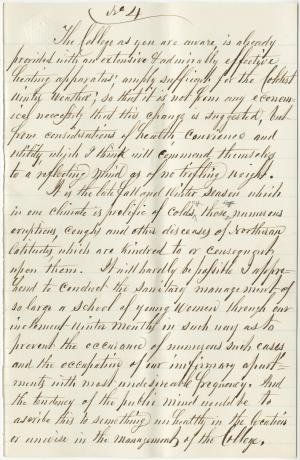 No 4
The College as you are aware, is already
provided with an extensive & admirably effective
heating apparatus; amply sufficient for the coldest
winter weather; so that it is not from any econom-
ical necessity that this change is suggested, but
from considerations of health convenience and
utility which I think will commend themselves
to a reflecting mind as of no trifling weight.
It is the late fall and winter season which
in our climate is prolific of colds, those numerous
eruptions, coughs and other diseases of Northern
latitudes which are kindred to or consequent
upon them. It will hardly be possible I appre-
hend to conduct the sanitary management of
so large a School of young Women through our
inclement winter months in such ways as to
prevent the occurance of numerous such cases
and the occupation of our infirmary apart-
ments with most undesireable frequency. And
the tendency of the public mind would be to
ascribe this to something unhealthy in the location
or unwise in the management of the College.